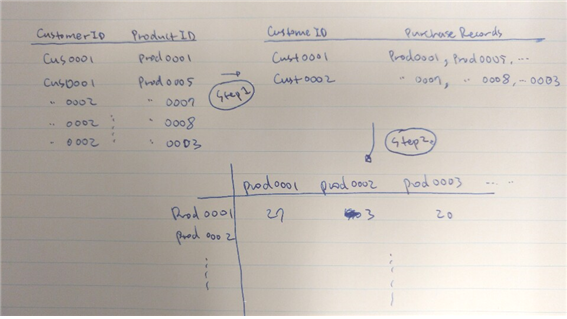 CustomerID ProductID
Cus0001 Prod0001
Cus0001 Prod0005
" 0002 " 0007
" 0002 " 0008
" 0002 " 0003
Step1
CustomeID Purchase Records
Cust0001 Prod0001, Prod0005, ...
Cust0002 " 0007, " 0008, " 0003
Step2
prod0001 prod0002 prod0003 ...
Prod0001 27 3 20
prod0002